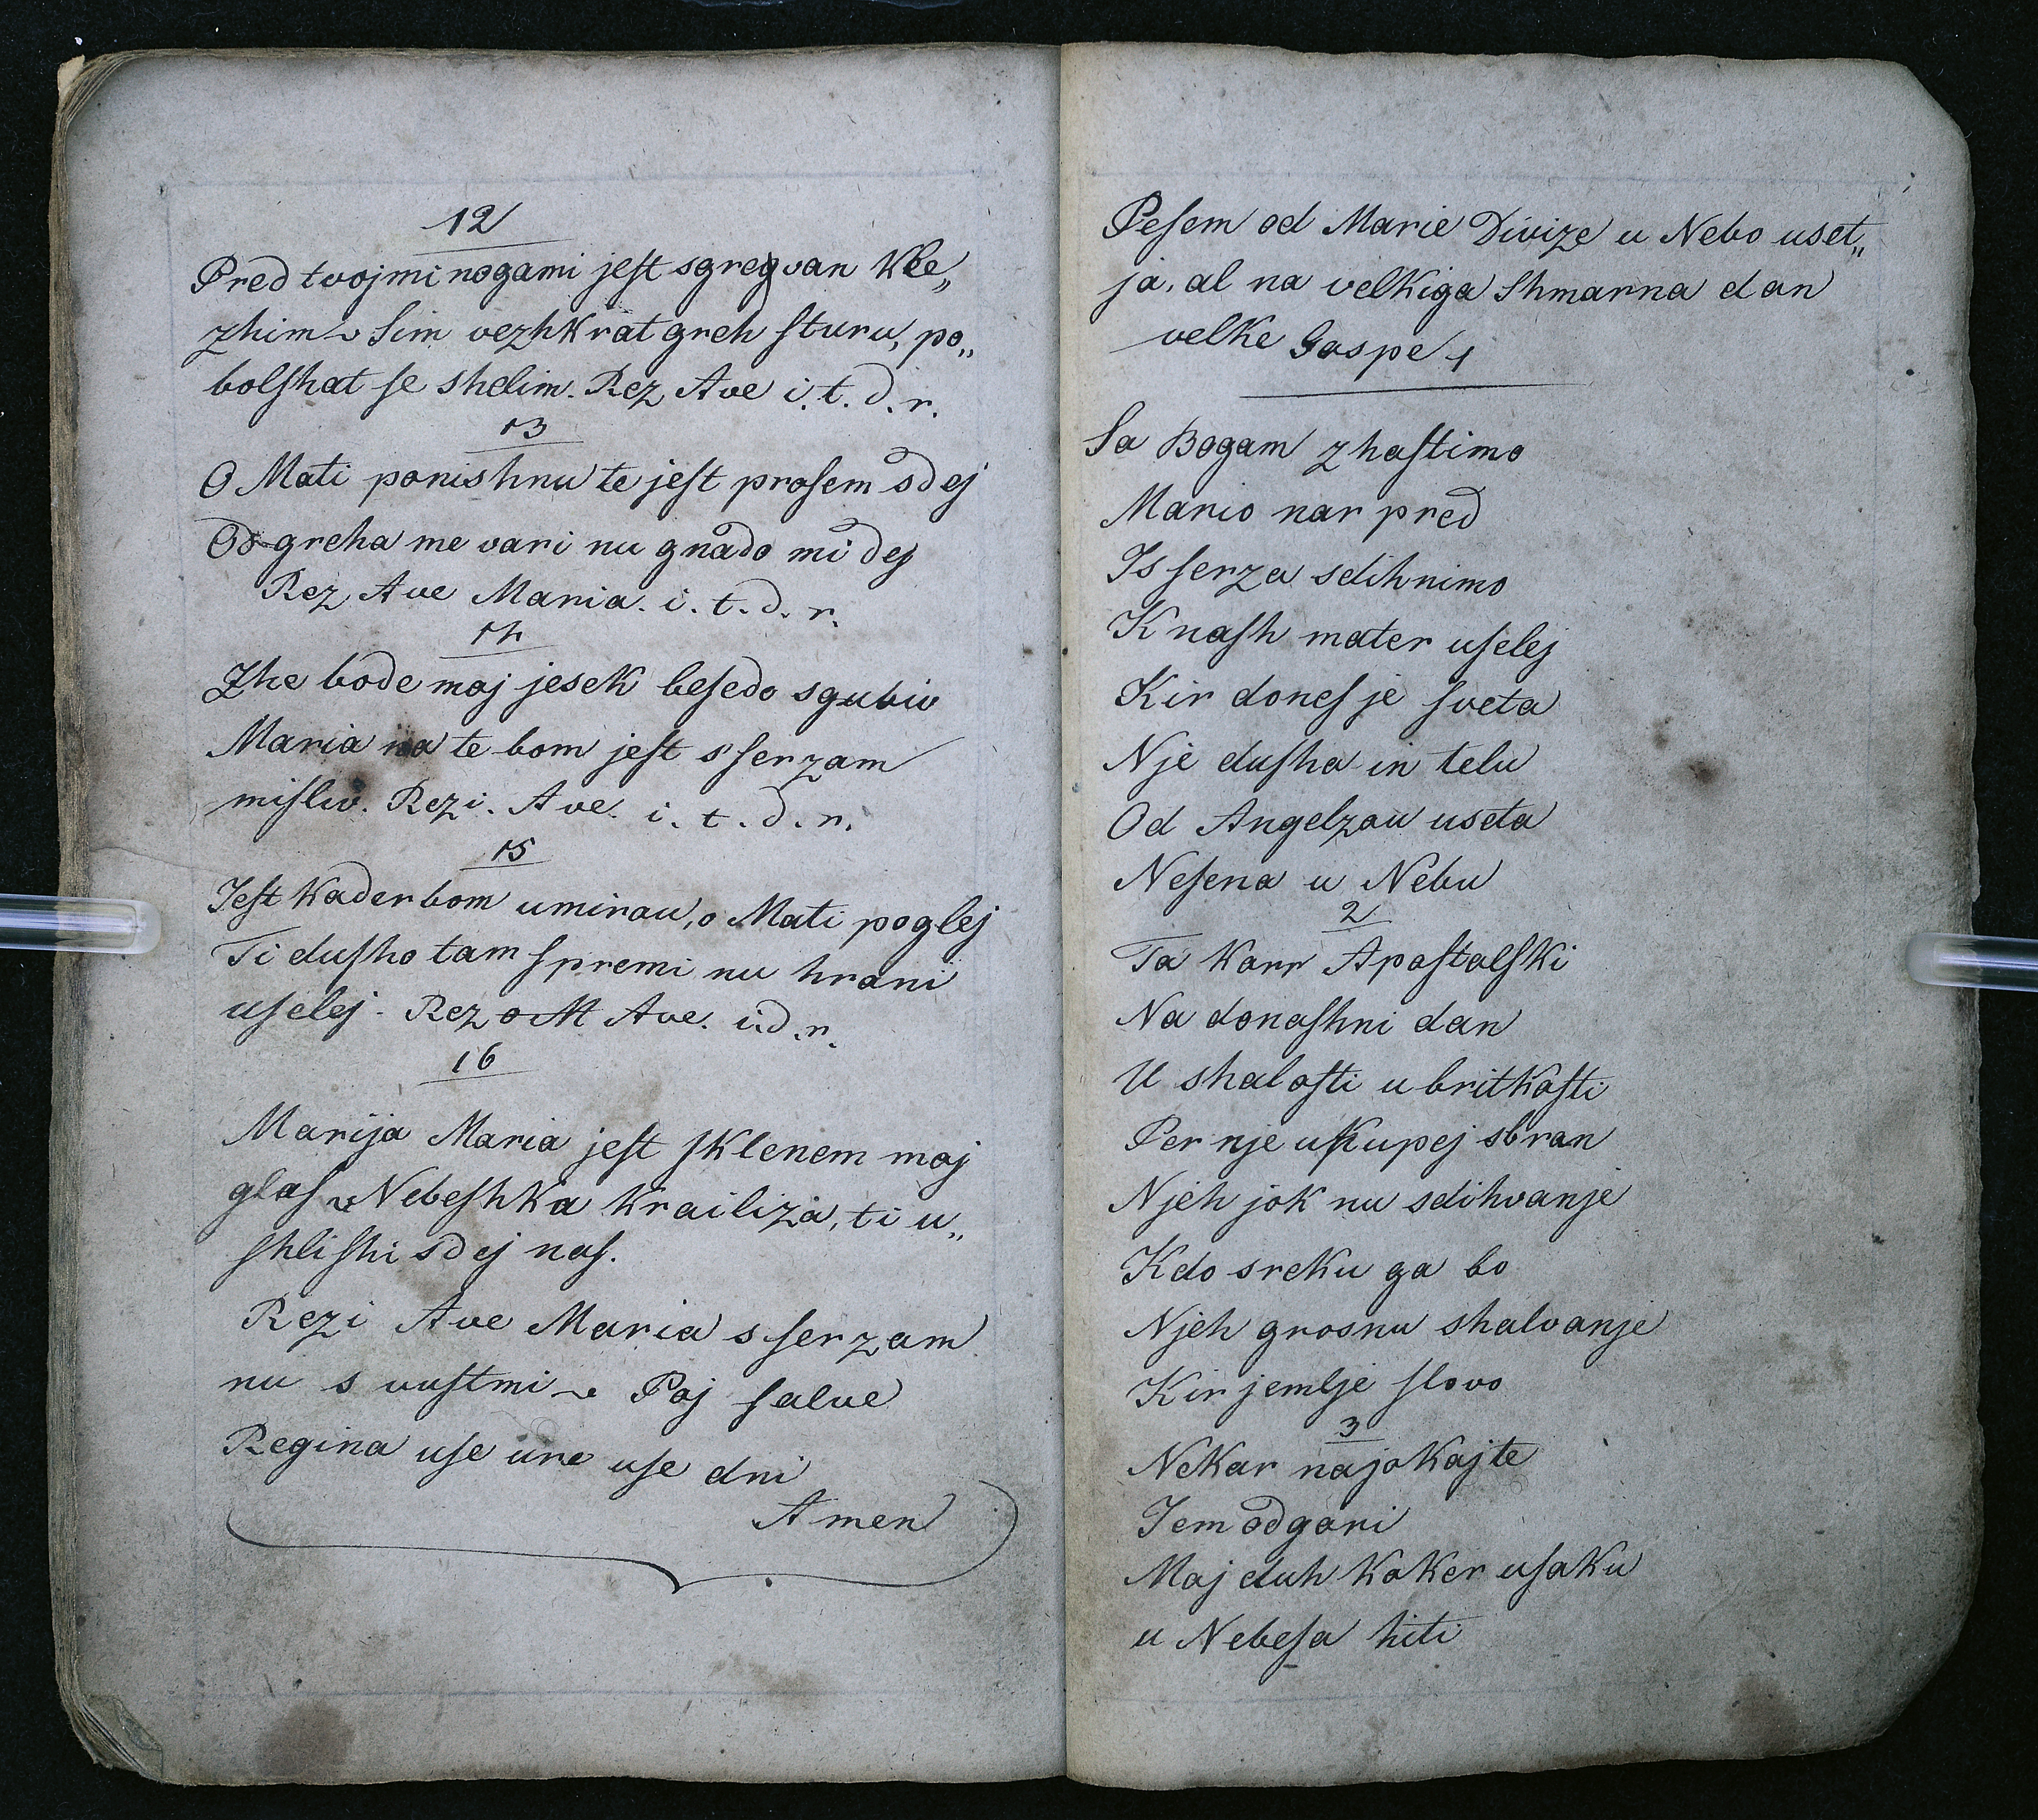 12
Pred tvojmi nogami jeſt sgrevan kle„
zhim ~ Sim vezhkrat greh ſturu, po„
bolſhat ſe shelim. Rez Ave i. t. d. r.
13
O Mati ponishnu te jeſt proſem sdej
Od greha me vari nu gnado mi dej
Rez Ave Maria. i. t. d. r.
14
Zhe bode moj jesek beſedo sgubiv
Maria na te bom jeſt s ſerzam
miſliv. Rezi. Ave. i. t. d. r.
15
Jeſt kader bom umirau, o Mati poglej
Ti duſho tam ſpremi nu hrani
uſelej. Rez o M Ave. i. d. r.
16
Marija Maria jeſt ſklenem moj
glaſ ~ Nebeſhka krailiza, ti u„
ſhliſhi sdej naſ.
Rezi Ave Maria s ſerzam
nu s vuſtmi ~ Poj ſalve
Regina uſe ure uſe dni
Amen
Peſem od Marie Divize u Nebo uset„
ja, al na velkiga Shmarna dan
velke Gospe 1
Sa Bogam zhaſtimo
Mario nar pred
Is ſerza sdihnimo
K naſh mater uſelej
Kir doneſ je ſveta
Nje duſha in telu
Od Angelzau useta
Neſena u Nebu
2
Ta karr Apoſtolſki
Na donaſhni dan
U shaloſti u britkoſti
Per nje uſkupej sbran
Njeh jok nu sdihvanje
Kdo sreku ga bo
Njeh grosnu shalvanje
Kir jemlje ſlovo
3
Nekar najokajte
Jem odgori
Moj duh koker uſaku
u Nebeſa hiti